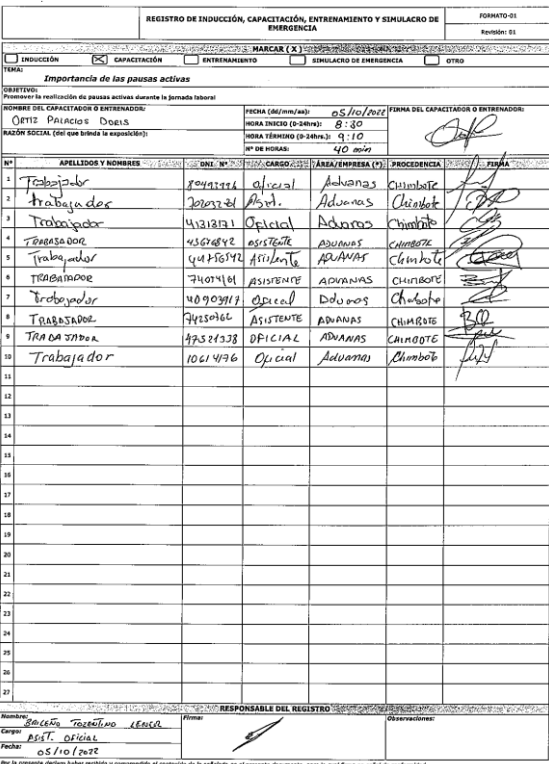 REGISTRO DE INDUCCIÓN, CAPACITACIÓN, ENTRENAMIENTO Y SIMULACRO DE EMERGENCIA
FORMATO-01
Revisión: 01
MARCAR ( X )
INDUCCIÓN CAPACITACIÓN ENTRENAMIENTO SIMULACRO DE EMERGENCIA OTRO
TEMA:
Importancia de las pausas activas
OBJETIVO:
Promover la realización de pausas activas durante la jornada laboral
NOMBRE DEL CAPACITADOR O ENTRENADOR:
ORTIZ PALACIOS DORIS
RAZÓN SOCIAL (del que brinda la exposición):
FECHA (dd/mm/aa): 05/10/2022
HORA INICIO (0-24hrs): 8:30
HORA TÉRMINO (0-24hrs.): 9:10
Nº DE HORAS: 40 min
FIRMA DEL CAPACITADOR O ENTRENADOR:
Nº APELLIDOS Y NOMBRES DNI. Nº CARGO ÁREA/EMPRESA (*) PROCEDENCIA FIRMA
1 Trabajador oficial Aduanas CHIMBOTE
2 trabajador Asist. Aduanas Chimbote
3 Trabajador 41318171 Oficial Aduanas Chimbote
4 TRABAJADOR 43676842 ASISTENTE ADUANAS CHIMBOTE
5 Trabajador 44756542 Asistente ADUANAS Chimbote
6 TRABAJADOR 74074161 ASISTENTE ADUANAS CHIMBOTE
7 Trabajador 40903917 Oficial Aduanas Chimbote
8 TRABAJADOR 74250362 ASISTENTE ADUANAS CHIMBOTE
9 TRABAJADOR 47521338 OFICIAL ADUANAS CHIMBOTE
10 Trabajador 10614176 Oficial Aduanas Chimbote
11
12
13
14
15
16
17
18
19
20
21
22
23
24
25
26
27
RESPONSABLE DEL REGISTRO
Nombre: BRICEÑO TOLENTINO
Cargo: ASIST. OFICIAL
Fecha: 05/10/2022
Firma:
Observaciones: